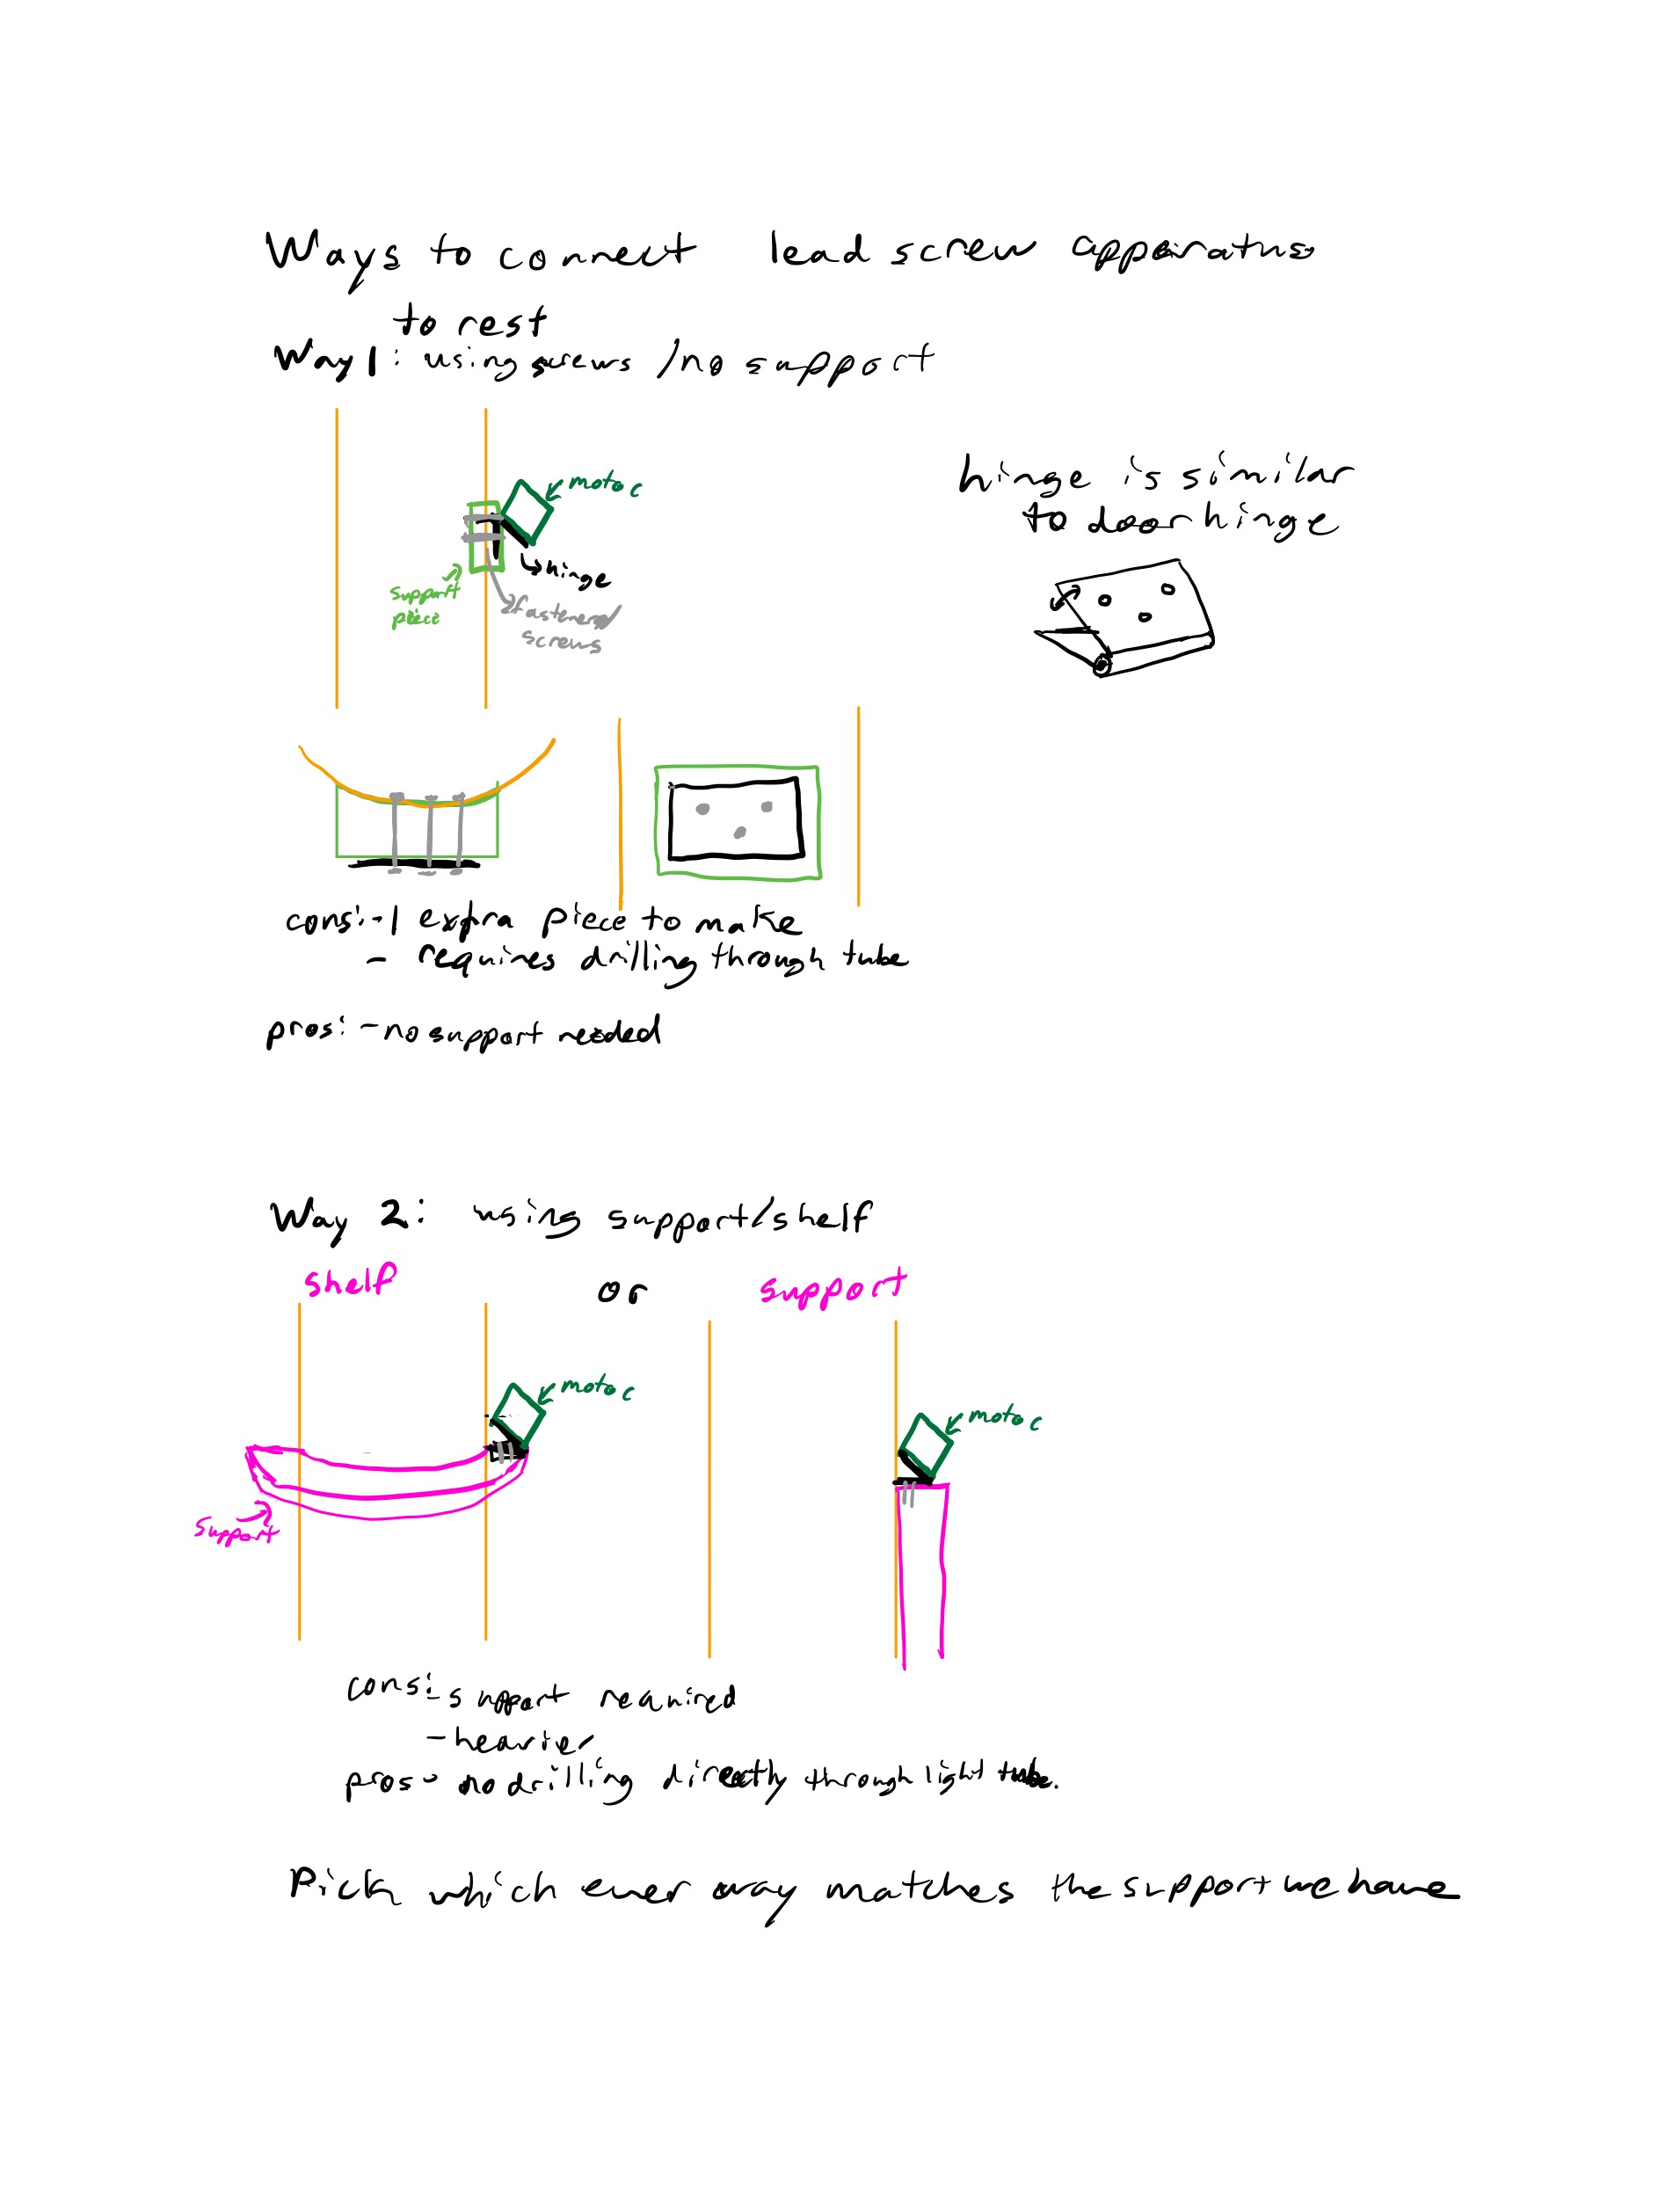 Ways to connect lead screw apparatus
to rest
Way 1: using screws / no support
motor
hinge is similar
to door hinge
hinge
support
piece
fasteners/
screws
cons: - 1 extra piece to make
- requires drilling through tube
pros: - no support needed
Way 2: using support/shelf
shelf or support
motor
motor
support
cons: - support required
- heavier
pros - no drilling directly through light tube.
Pick which ever way matches the support we have